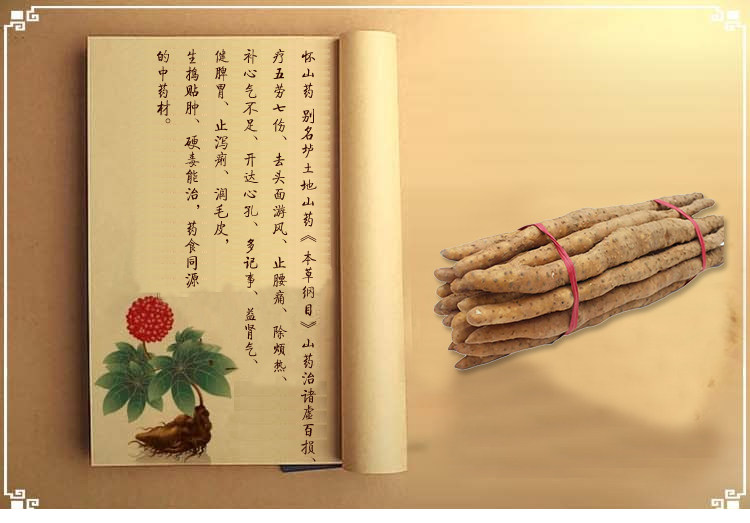 怀山药 别名垆土地山药《本草纲目》山药治诸虚百损、
疗五劳七伤、去头面游风、止腰痛、除烦热、
补心气不足、开达心孔、多记事、益肾气、
健脾胃、止泻痢、润毛皮，
生捣贴肿、硬毒能治，药食同源
的中药材。